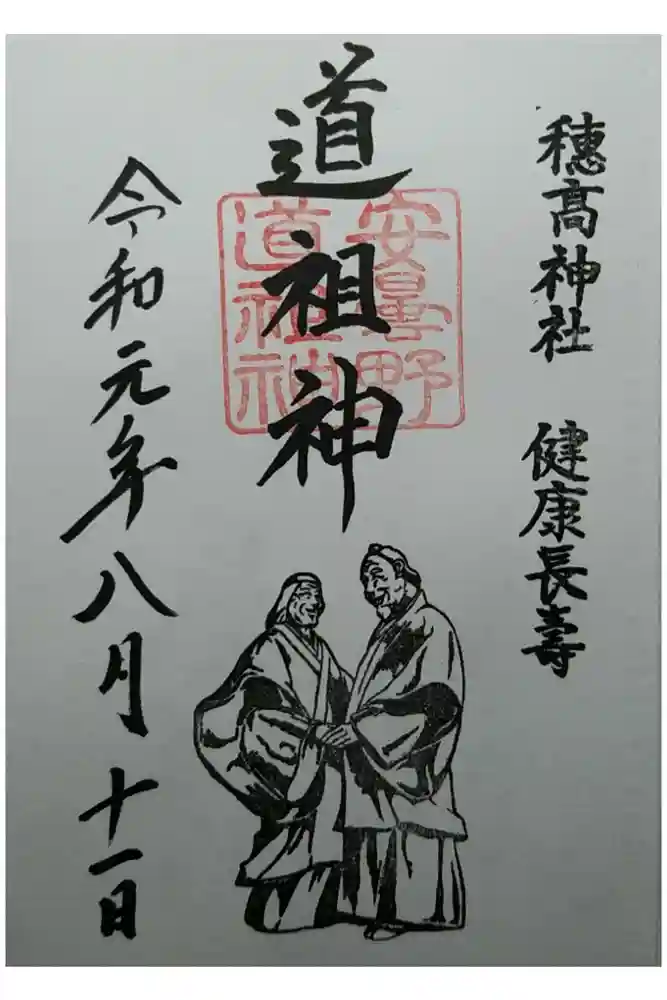 穂高神社 健康長壽
道祖神
安曇野
道祖神
令和元年八月十一日